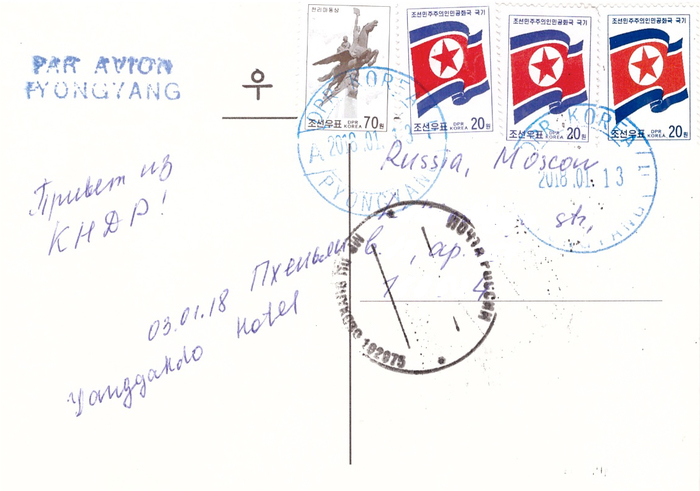 천리마동상
70원
조선우표 DPR KOREA
조선민주주의인민공화국 국기
조선우표 DPR KOREA 20원
조선민주주의인민공화국 국기
조선우표 DPR KOREA 20원
조선민주주의인민공화국 국기
조선우표 DPR KOREA 20원
PAR AVION
PYONGYANG
우
DPR KOREA
A 2018.01.13
PYONGYANG
DPR KOREA
2018.01.13
Russia, Moscow
str,
, ap.
Привет из
КНДР!
03.01.18 Пхеньян
Yanggakdo Hotel
ПОЧТА РОССИИ
102975